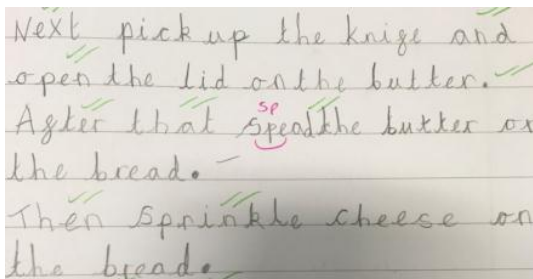 Next pick up the knife and
open the lid on the butter.
sp
After that spead the butter on
the bread.
Then Sprinkle cheese on
the bread.